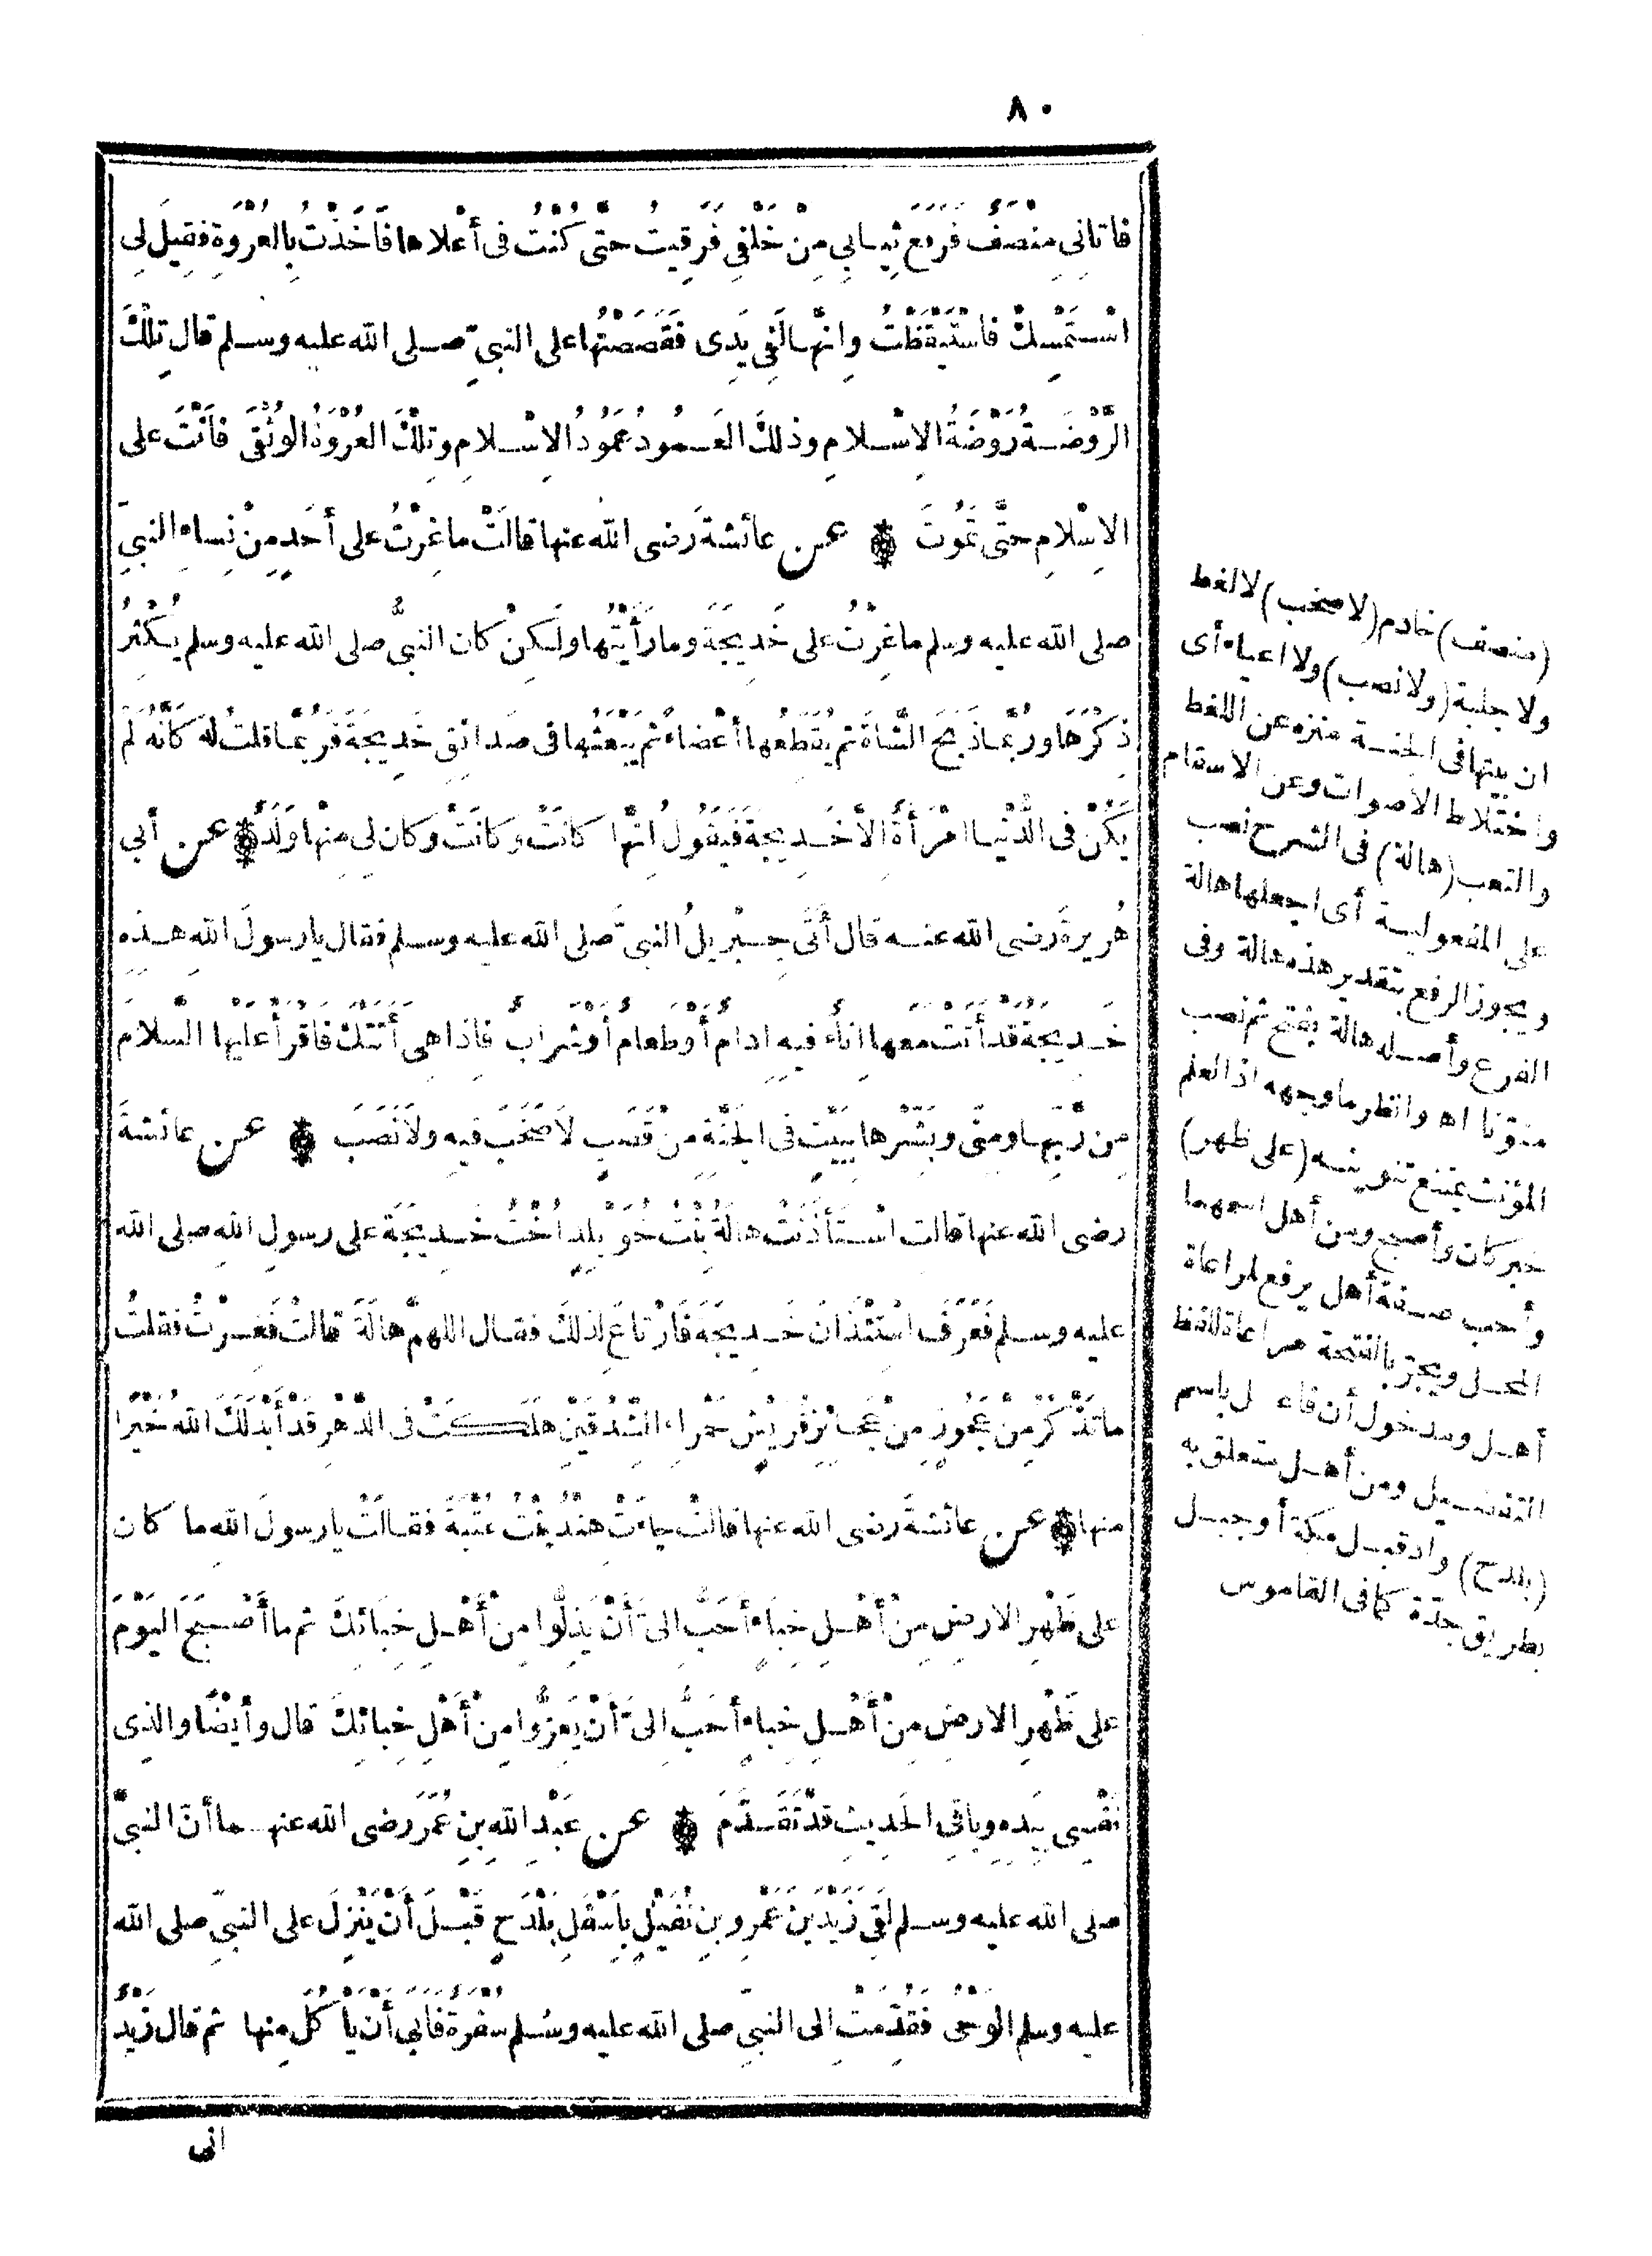 ٨٠
فاتانى مِنْصَفٌ فَرَفَعَ ثِيابِي مِنْ خَلْفِى فَرَقِيتُ حتَّى كُنْتُ فى أعْلاها فَاَخَذْتُ بِالعُرْوَةِ فقِيلَ لِى
اسْتَمْسِكْ فاسْتَيْقَظْتُ وإنَّها لَفِى يَدِى فَقَصَصْتُها على النبىِّ صلى الله عليه وسلم قال تِلْكَ
الرَّوْضَةُ رَوْضَةُ الاِسْلامِ وذلكَ العَمُودُ عَمُودُ الاِسْلامِ وتِلْكَ العُرْوَةُ الوُثْقَى فأنْتَ على
الاِسْلامِ حتَّى تَمُوتَ ۞ عن عائشةَ رَضى الله عنها قالَتْ ماغِرْتُ على أحَدٍ مِنْ نِساءِ النبىِّ
صلى الله عليه وسلم ماغِرْتُ على خَدِيجَةَ ومارَأيْتُها ولَكِنْ كان النبىُّ صلى الله عليه وسلم يُكْثِرُ
ذِكْرَها ورُبَّما ذَبَحَ الشَّاةَ ثم يُقَطِّعُها أعْضاءً ثم يَبْعَثُها فى صَدائِقِ خَدِيجَةَ فَرُبَّما قلتُ لَهُ كَأنَّهُ لَمْ
يَكُنْ فى الدُّنْيا امْرَأةٌ الاَّ خَدِيجةُ فَيَقُولُ انَّها كانَتْ وكانَتْ وكان لِى مِنْها وَلَدٌ ۞ عن أبى
هُريرةَ رَضى الله عنه قال أتَى جِبْرِيلُ النبىَّ صلى الله عليه وسلم فقال يارسولَ اللهِ هذِهِ
خَدِيجةُ قَدْ أتَتْ مَعَها اناءٌ فيهِ ادامٌ أوْ طَعامٌ أوْ شَرابٌ فاِذا هِىَ أتَتْكَ فَاقْرَأْ عَلَيْها السَّلامَ
مِن رَبِّها ومِنِّى وبَشِّرْها بِبَيْتٍ فى الجَنَّةِ مِنْ قَصَبٍ لاَصَخَبَ فيهِ ولاَنَصَبَ ۞ عن عائشةَ
رضى الله عنها قالت اسْتَأذَنَتْ هالَةُ بِنْتُ خُوَيْلِدٍ اُخْتُ خَدِيجَةَ على رسولِ اللهِ صلى الله
عليه وسلم فَعَرَفَ اسْتِئْذانَ خَدِيجَةَ فَارْتاعَ لِذلكَ فقال اللهمَّ هالَةَ قالتْ فَغِرْتُ فقلتُ
ماتَذْكُرُ مِنْ عَجُوزٍ مِنْ عَجائِزِ قُرَيْشٍ حَمْراءِ الشِّدْقَيْنِ هَلَكَتْ فى الدَّهْرِ قَدْ أبْدَلَكَ اللهُ خَيْرًا
منها ۞ عن عائشةَ رضى الله عنها قالتْ جاءتْ هِنْدُ بِنْتُ عُتْبَةَ فقالَتْ يارسولَ اللهِ ما كان
على ظَهْرِ الارضِ مِنْ أهْلِ خِباءٍ أحَبُّ الىَّ أنْ يَذِلُّوا مِنْ أهْلِ خِبائِكَ ثم ما أصْبَحَ اليَوْمَ
على ظَهْرِ الارضِ مِنْ أهْلِ خِباءٍ أحَبُّ الىَّ أنْ يَعِزُّوا مِنْ أهْلِ خِبائِكَ قال وأيْضًا والذِى
نَفْسِى بِيَدِهِ وباقِى الحَدِيثِ قدْتَقَدَّمَ ۞ عن عَبْدِ اللهِ بنِ عُمَرَ رَضى الله عنهما أنّ النبىَّ
صلى الله عليه وسلم لَقِىَ زَيْدَ بنَ عَمْرِو بنِ نُفَيْلٍ بِاَسْفَلِ بَلْدَحٍ قَبْلَ أنْ يَنْزِلَ على النبىِّ صلى الله
عليه وسلم الوَحْىُ فَقُدِّمَتْ الى النبىِّ صلى الله عليه وسلم سُفْرَةٌ فَاَبَى أنْ يَأكُلَ مِنها ثم قال زَيْدٌ
انى
(منصف) خادم (لاصخب) لالغط
ولاجلبة (ولانصب) ولا اعياء أى
ان بيتها فى الجنة منزه عن اللغط
واختلاط الاصوات وعن الاسقام
والتعب (هالة) فى الشرح نصب
على المفعولية أى اجعلها هالة
ويجوز الرفع بتقدير هذه هالة وفى
الفرع وأصله هالة بفتح ثم نصب
منوّنا اه وانظر ماوجهه اذ العلم
المؤنث يمتنع تنوينه (على ظهر)
خبر كان وأصبح ومن أهل اسمهما
وأحب صفة أهل يرفع لمراعاة
المحل ويجرّ بالفتحة مراعاة للفظ
أهل ومدخول أن فاعل باسم
التفضيل ومن أهل متعلق به
(بلدح) واد قبل مكة أو جبل
بطريق جدّة كما فى القاموس